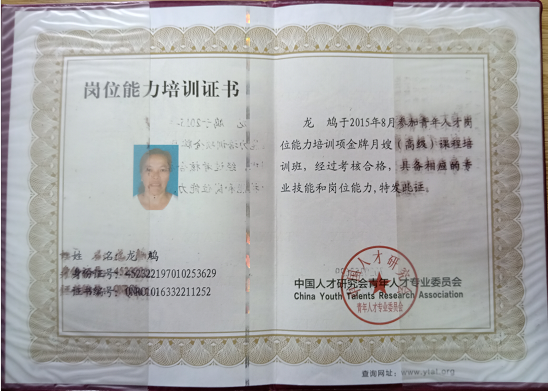 岗位能力培训证书
龙 鸠于2015年8月参加青年人才岗
位能力培训项金牌月嫂（高级）课程培
训班，经过考核合格，具备相应的专
业技能和岗位能力，特发此证。
姓 名：龙 鸠
身份证号：452322197010253629
证书编号：
中国人才研究会青年人才专业委员会
China Youth Talents Research Association
中国人才研究会
青年人才专业委员会
查询网址：www.ytal.org